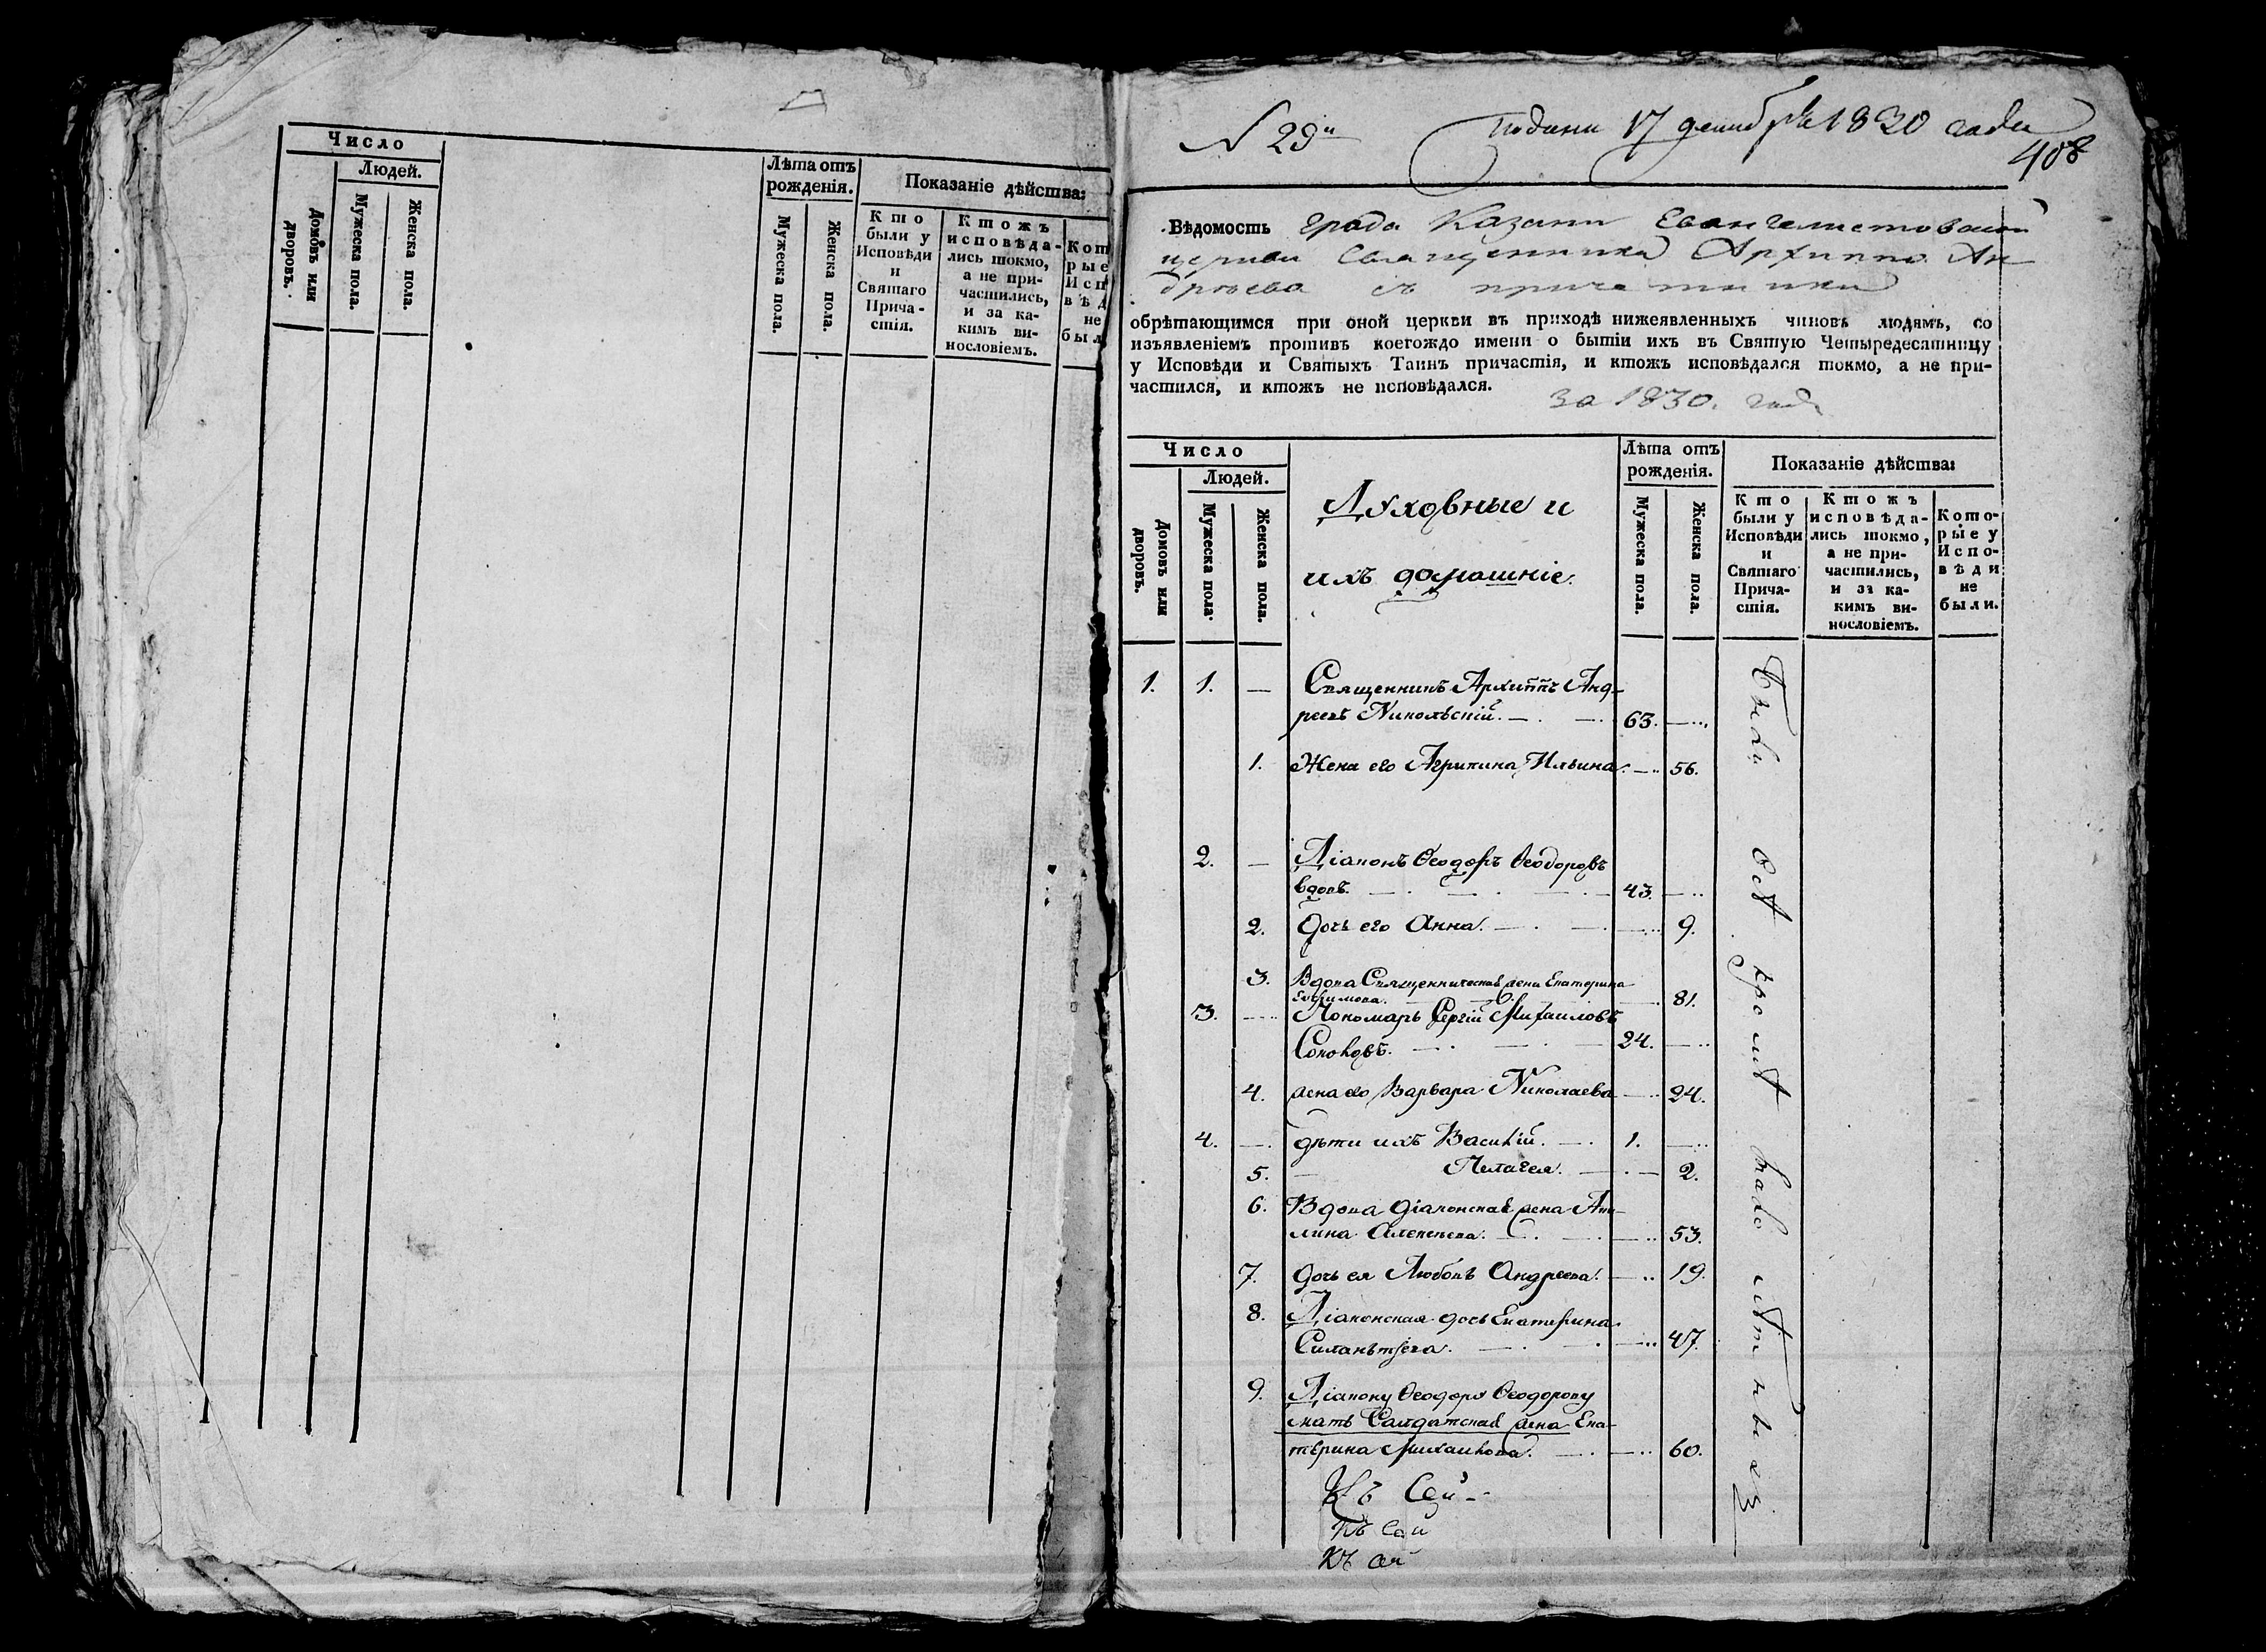 Число
Людей.
Домовъ или дворовъ.
Мужеска пола.
Женска пола.
Лѣта отъ рожденія.
Мужеска пола.
Женска пола.
Показаніе дѣйства:
Кто
были у
Исповѣди
и
Святаго
Прича-
стія.
Ктожъ
исповѣда-
лись токмо,
а не при-
частились,
и за ка-
кимъ ви-
нословіемъ.
Кот
рые
Исп
вѣд
не
был
N 29й
Подана 17 декабря 1830 года
408
Вѣдомость града Казани Евангелистовской
церкви Священника Архиппа Ан-
дреева съ причетники
обрѣтающимся при оной церкви въ приходѣ нижеявленныхъ чиновъ людямъ, со
изъявленіемъ противъ коегождо имени о бытіи ихъ въ Святую Четыредесятницу
у Исповѣди и Святыхъ Таинъ причастія, и ктожъ исповѣдался токмо, а не при-
частился, и ктожъ не исповѣдался.
за 1830. годъ
Число
Людей.
Домовъ или дворовъ.
Мужеска пола.
Женска пола.
Духовные и
ихъ домашніе.
Лѣта отъ
рожденія.
Мужеска пола.
Женска пола.
Показаніе дѣйства:
Кто
были у
Исповѣди
и
Святаго
Прича-
стія.
Ктожъ
исповѣда-
лись токмо,
а не при-
частились,
и за ка-
кимъ ви-
нословіемъ.
Кото-
рые у
Испо-
вѣди
не
были.
1. 1. — Священникъ Архиппъ Анд-
реевъ Никольскій. — 63.
1. Жена его Агрипина Ильина. — 56.
2. — Діаконъ Ѳеодоръ Ѳеодоровъ
вдовъ. — 43.
2. Дочь его Анна. — 9.
3. Вдова Священническая жена Екатерина
81.
3. Пономарь Сергій Михаиловъ
Соколовъ. — 24.
4. жена его Варвара Николаева — 24.
4. — дѣти ихъ Василій. — 1.
5. — Пелагея. — 2.
6. Вдова діаконская жена Аки-
лина Алексѣева. — 53.
7. дочь ея Любовь Андреева. — 19.
8. Діаконская дочь Екатерина
47.
9. Діакону Ѳеодору Ѳеодорову
мать Салдатская жена Ека-
терина Михаилова. — 60.
Были всѣ кромѣ